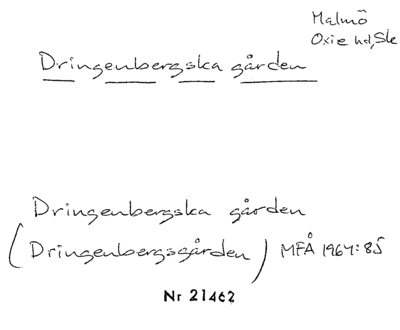 Malmö
Oxie hd, Sk
Dringenbergska gården
Dringenbergska gården
(Dringenbergsgården) MFÅ 1967:85
Nr 21462